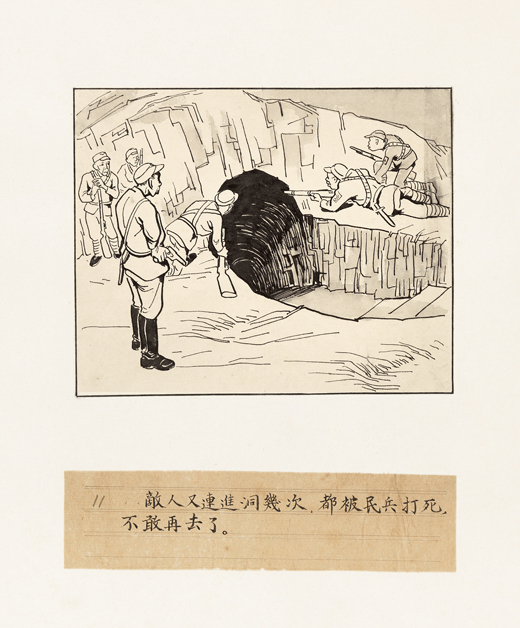 11 敵人又連進洞幾次,都被民兵打死,
不敢再去了。